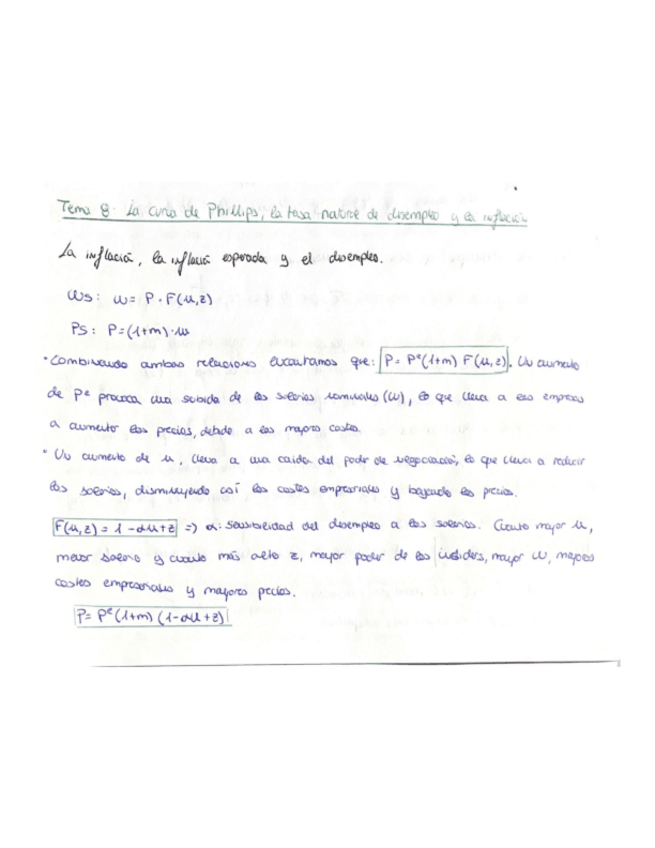 Tema 8: La curva de Phillips, la tasa natural de desempleo y la inflación
La inflación, la inflación esperada y el desempleo.
WS: W = P · F(u,z)
PS: P = (1+m) · W
· Combinando ambas relaciones encontramos que: P = Pᵉ(1+m) F(u,z). Un aumento
de Pᵉ provoca una subida de los salarios nominales (W), lo que lleva a las empresas
a aumentar los precios, debido a los mayores costes.
· Un aumento de u, lleva a una caída del poder de negociación, lo que lleva a reducir
los salarios, disminuyendo así los costes empresariales y bajando los precios.
F(u,z) = 1 - αu + z => α: sensibilidad del desempleo a los salarios. Cuanto mayor u,
menor salario y cuanto más alto z, mayor poder de los insiders, mayor W, mayores
costes empresariales y mayores precios.
P = Pᵉ(1+m) (1-αu+z)